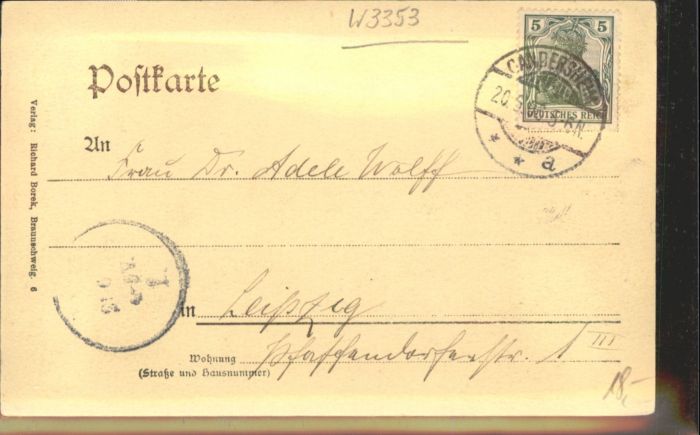 W3353
Postkarte
5 5
DEUTSCHES REICH
GANDERSHEIM
20.9.
5-6N.
* * a
An
Frau Dr. Adele Wolff
in
Leipzig
Wohnung
(Straße und Hausnummer)
Pfaffendorferstr. 1 III
18,-
Verlag: Richard Borek, Braunschweig. 6